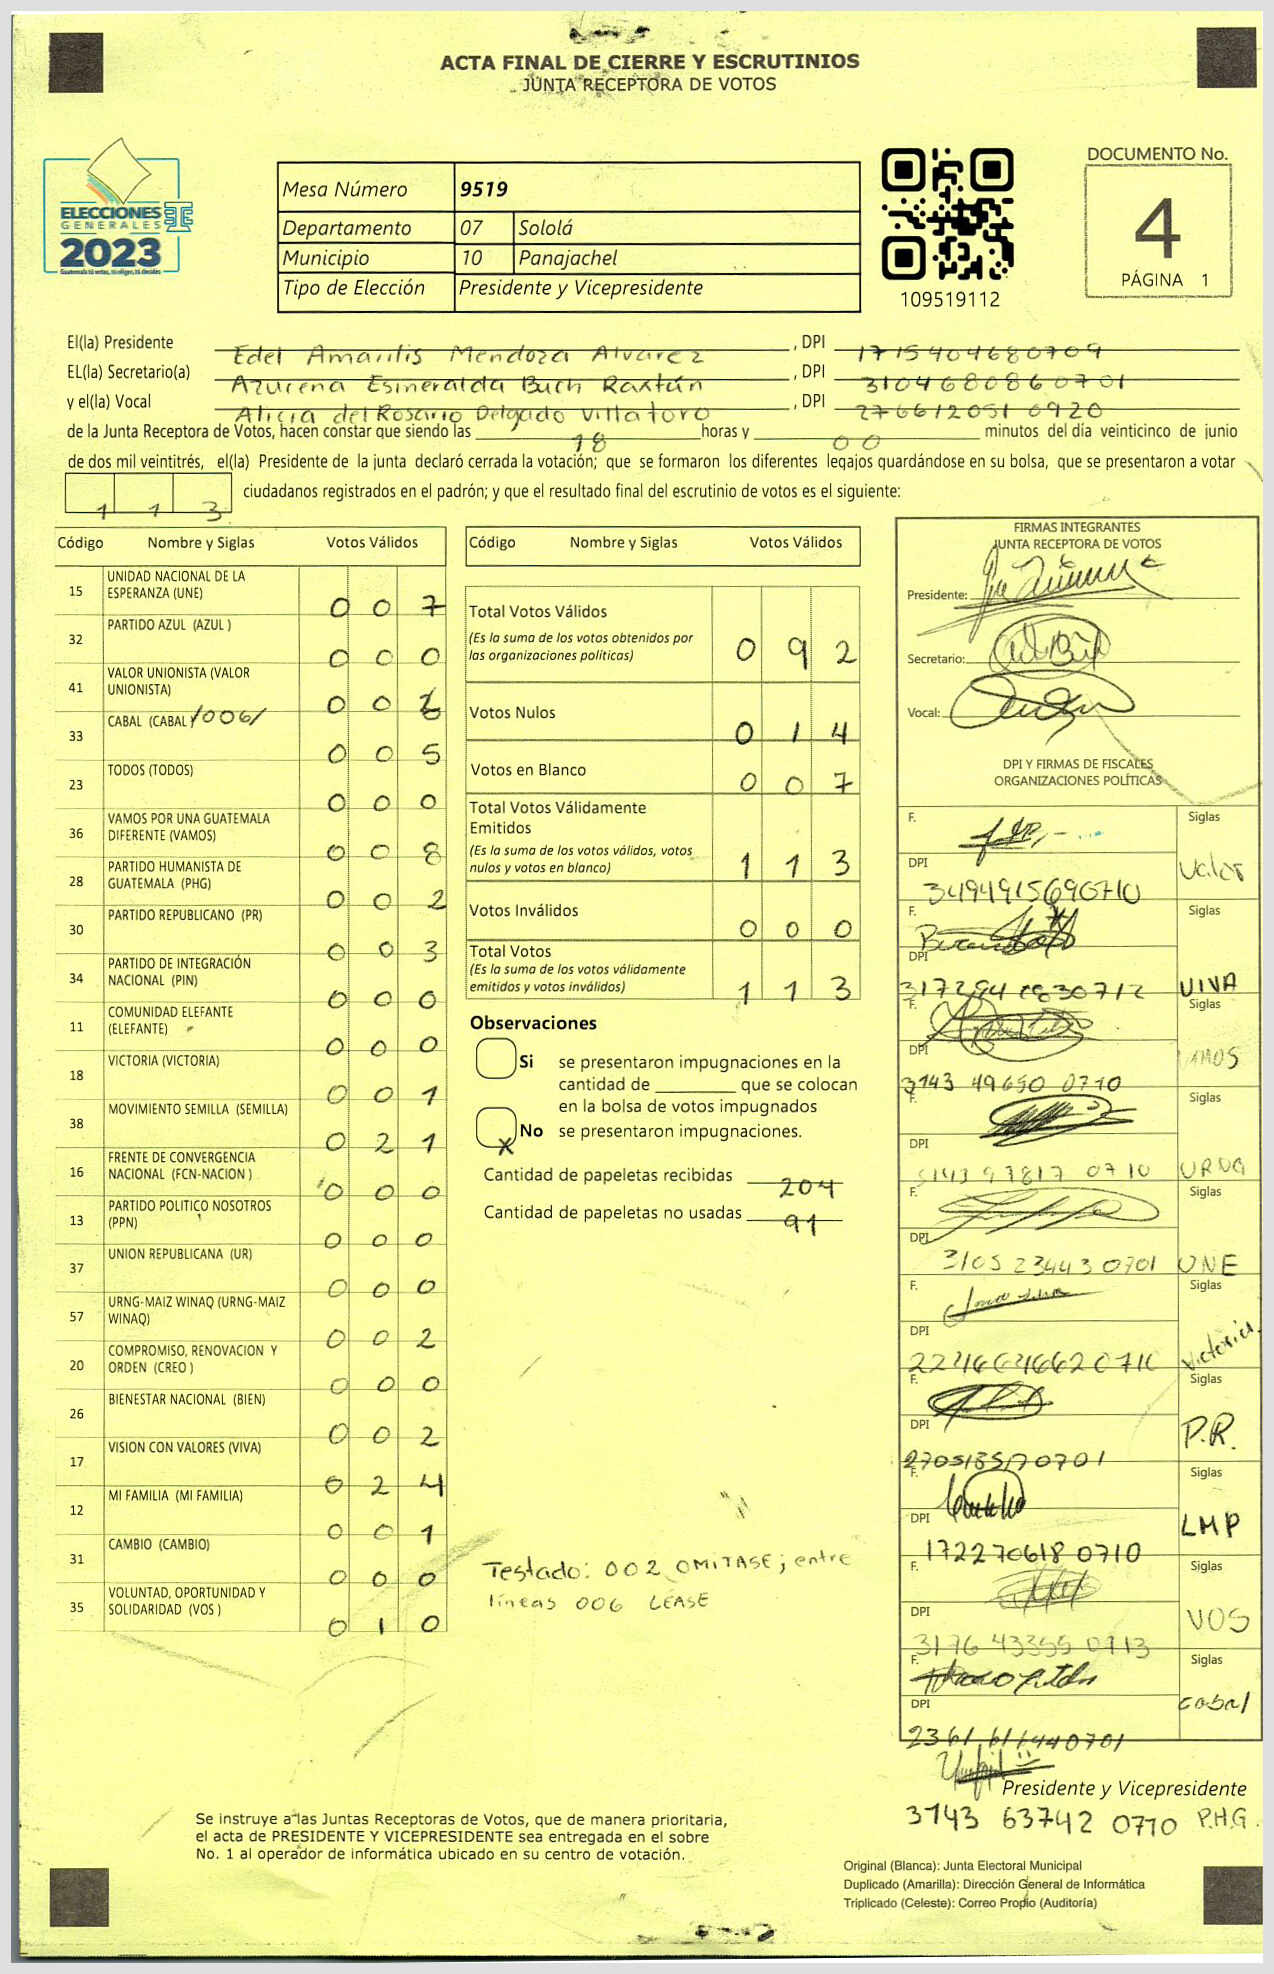 ACTA FINAL DE CIERRE Y ESCRUTINIOS
JUNTA RECEPTORA DE VOTOS
ELECCIONES
GENERALES
2023
Mesa Número 9519
Departamento 07 Sololá
Municipio 10 Panajachel
Tipo de Elección Presidente y Vicepresidente
109519112
DOCUMENTO No.
4
PÁGINA 1
El(la) Presidente Edel Amarilis Mendoza Alvarez, DPI 1715404680709
EL(la) Secretario(a) Azucena Esmeralda Buch Raxtún, DPI 3104680860701
y el(la) Vocal Alicia del Rosario Delgado Villatoro, DPI 2766120510920
de la Junta Receptora de Votos, hacen constar que siendo las 18 horas y 00 minutos del día veinticinco de junio
de dos mil veintitrés, el(la) Presidente de la junta declaró cerrada la votación; que se formaron los diferentes legajos guardándose en su bolsa, que se presentaron a votar
113 ciudadanos registrados en el padrón; y que el resultado final del escrutinio de votos es el siguiente:
Código Nombre y Siglas Votos Válidos
15 UNIDAD NACIONAL DE LA ESPERANZA (UNE) 007
32 PARTIDO AZUL (AZUL ) 000
41 VALOR UNIONISTA (VALOR UNIONISTA) 00
/006/
33 CABAL (CABAL) 005
23 TODOS (TODOS) 000
36 VAMOS POR UNA GUATEMALA DIFERENTE (VAMOS) 008
28 PARTIDO HUMANISTA DE GUATEMALA (PHG) 002
30 PARTIDO REPUBLICANO (PR) 003
34 PARTIDO DE INTEGRACIÓN NACIONAL (PIN) 000
11 COMUNIDAD ELEFANTE (ELEFANTE) 000
18 VICTORIA (VICTORIA) 001
38 MOVIMIENTO SEMILLA (SEMILLA) 021
16 FRENTE DE CONVERGENCIA NACIONAL (FCN-NACION ) 000
13 PARTIDO POLITICO NOSOTROS (PPN) 000
37 UNION REPUBLICANA (UR) 000
57 URNG-MAIZ WINAQ (URNG-MAIZ WINAQ) 002
20 COMPROMISO, RENOVACION Y ORDEN (CREO ) 000
26 BIENESTAR NACIONAL (BIEN) 002
17 VISION CON VALORES (VIVA) 024
12 MI FAMILIA (MI FAMILIA) 001
31 CAMBIO (CAMBIO) 000
35 VOLUNTAD, OPORTUNIDAD Y SOLIDARIDAD (VOS ) 010
Código Nombre y Siglas Votos Válidos
Total Votos Válidos 092
(Es la suma de los votos obtenidos por
las organizaciones políticas)
Votos Nulos 014
Votos en Blanco 007
Total Votos Válidamente
Emitidos 113
(Es la suma de los votos válidos, votos
nulos y votos en blanco)
Votos Inválidos 000
Total Votos 113
(Es la suma de los votos válidamente
emitidos y votos inválidos)
Observaciones
Si se presentaron impugnaciones en la
cantidad de ________ que se colocan
en la bolsa de votos impugnados
X No se presentaron impugnaciones.
Cantidad de papeletas recibidas 204
Cantidad de papeletas no usadas 91
Testado: 002 OMITASE; entre
líneas 006 LEASE
FIRMAS INTEGRANTES
JUNTA RECEPTORA DE VOTOS
Presidente:
Secretario:
Vocal:
DPI Y FIRMAS DE FISCALES
ORGANIZACIONES POLÍTICAS
F. Siglas
DPI 3494915690710 Valor
F. Siglas
DPI VIVA
F. Siglas
DPI 3143 49650 0710 VAMOS
F. Siglas
DPI URNG
F. Siglas
DPI 3105 23443 0701 UNE
F. Siglas
DPI Victoria
F. Siglas
DPI P.R.
F. Siglas
DPI 172270618 0710 LMP
F. Siglas
DPI 3176 43355 0713 VOS
F. Siglas
DPI cabal
Presidente y Vicepresidente
3143 63742 0710 P.H.G.
Se instruye a las Juntas Receptoras de Votos, que de manera prioritaria,
el acta de PRESIDENTE Y VICEPRESIDENTE sea entregada en el sobre
No. 1 al operador de informática ubicado en su centro de votación.
Original (Blanca): Junta Electoral Municipal
Duplicado (Amarilla): Dirección General de Informática
Triplicado (Celeste): Correo Propio (Auditoría)